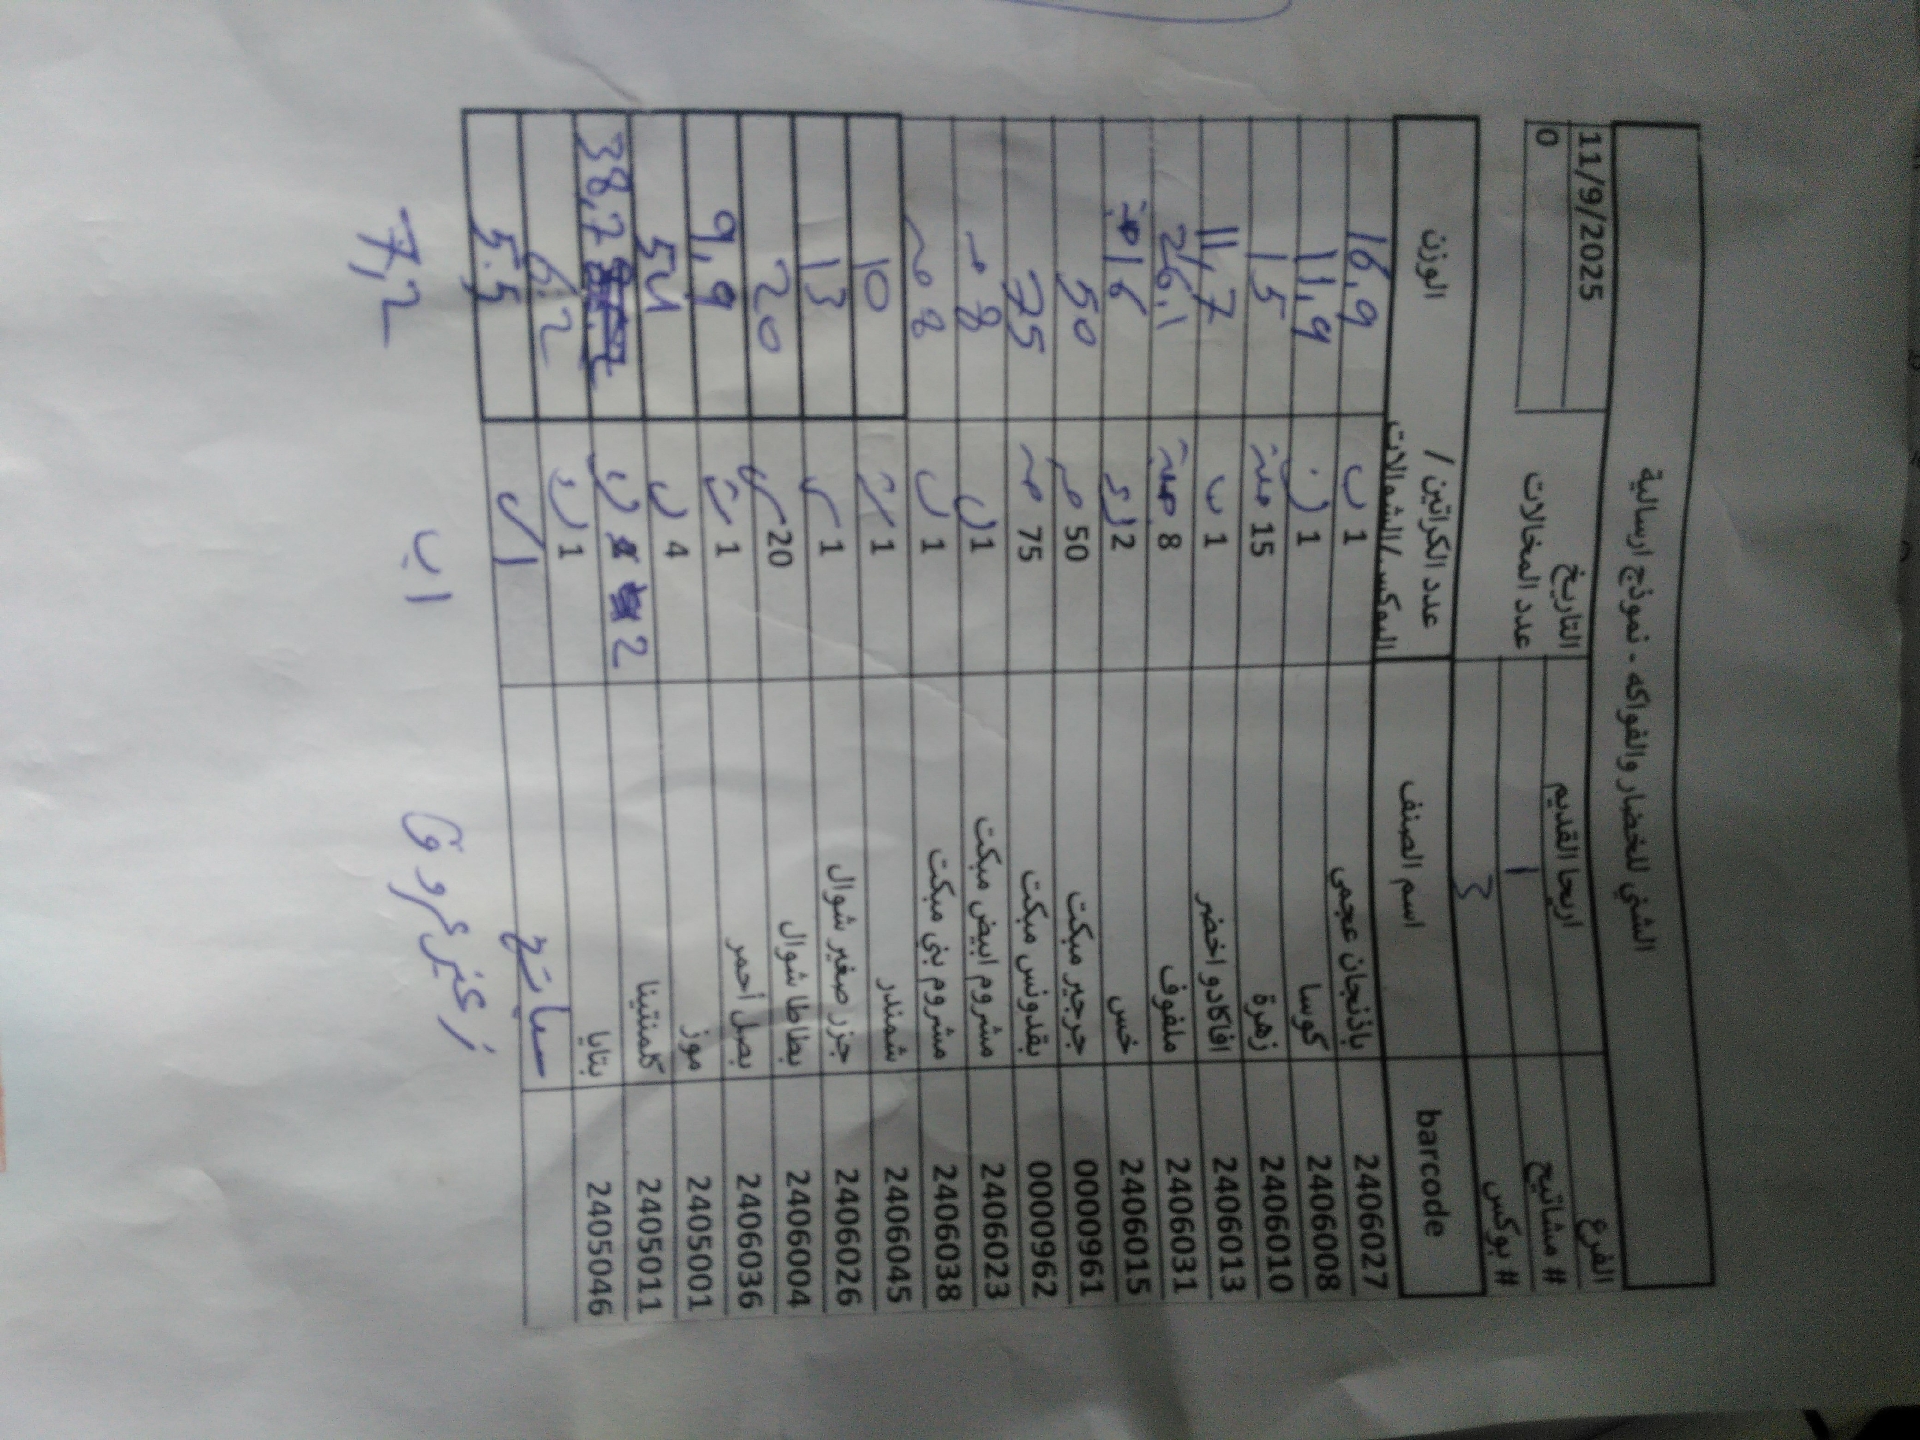 الشني للخضار والفواكه - نموذج ارسالية
الفرع اريحا القديم التاريخ 11/9/2025
# مشاتيح 1 عدد المخالات 0
# بوكس 3
barcode اسم الصنف عدد الكراتين / البوكس/الشوالات الوزن
2406027 باذنجان عجمي 1 ب 16,9
2406008 كوسا 1 11,9
2406010 زهرة 15 حبة 15
2406013 افاكادو اخضر 1 ب 11,7
2406031 ملفوف 8 حبة 26,1
2406015 خس 2 16
0000961 جرجير مبكت 50 50
0000962 بقدونس مبكت 75 75
2406023 مشروم ابيض مبكت 1 8
2406038 مشروم بني مبكت 1 8
2406045 شمندر 1 10
2406026 جزر صغير شوال 1 13
2406004 بطاطا شوال 20 20
2406036 بصل أحمر 1 9,9
2405001 موز 4 54
2405011 كلمنتينا 2 38,7
2405046 بتايا 1 6.2
سبانخ 1 5.5
1 ب 7,2